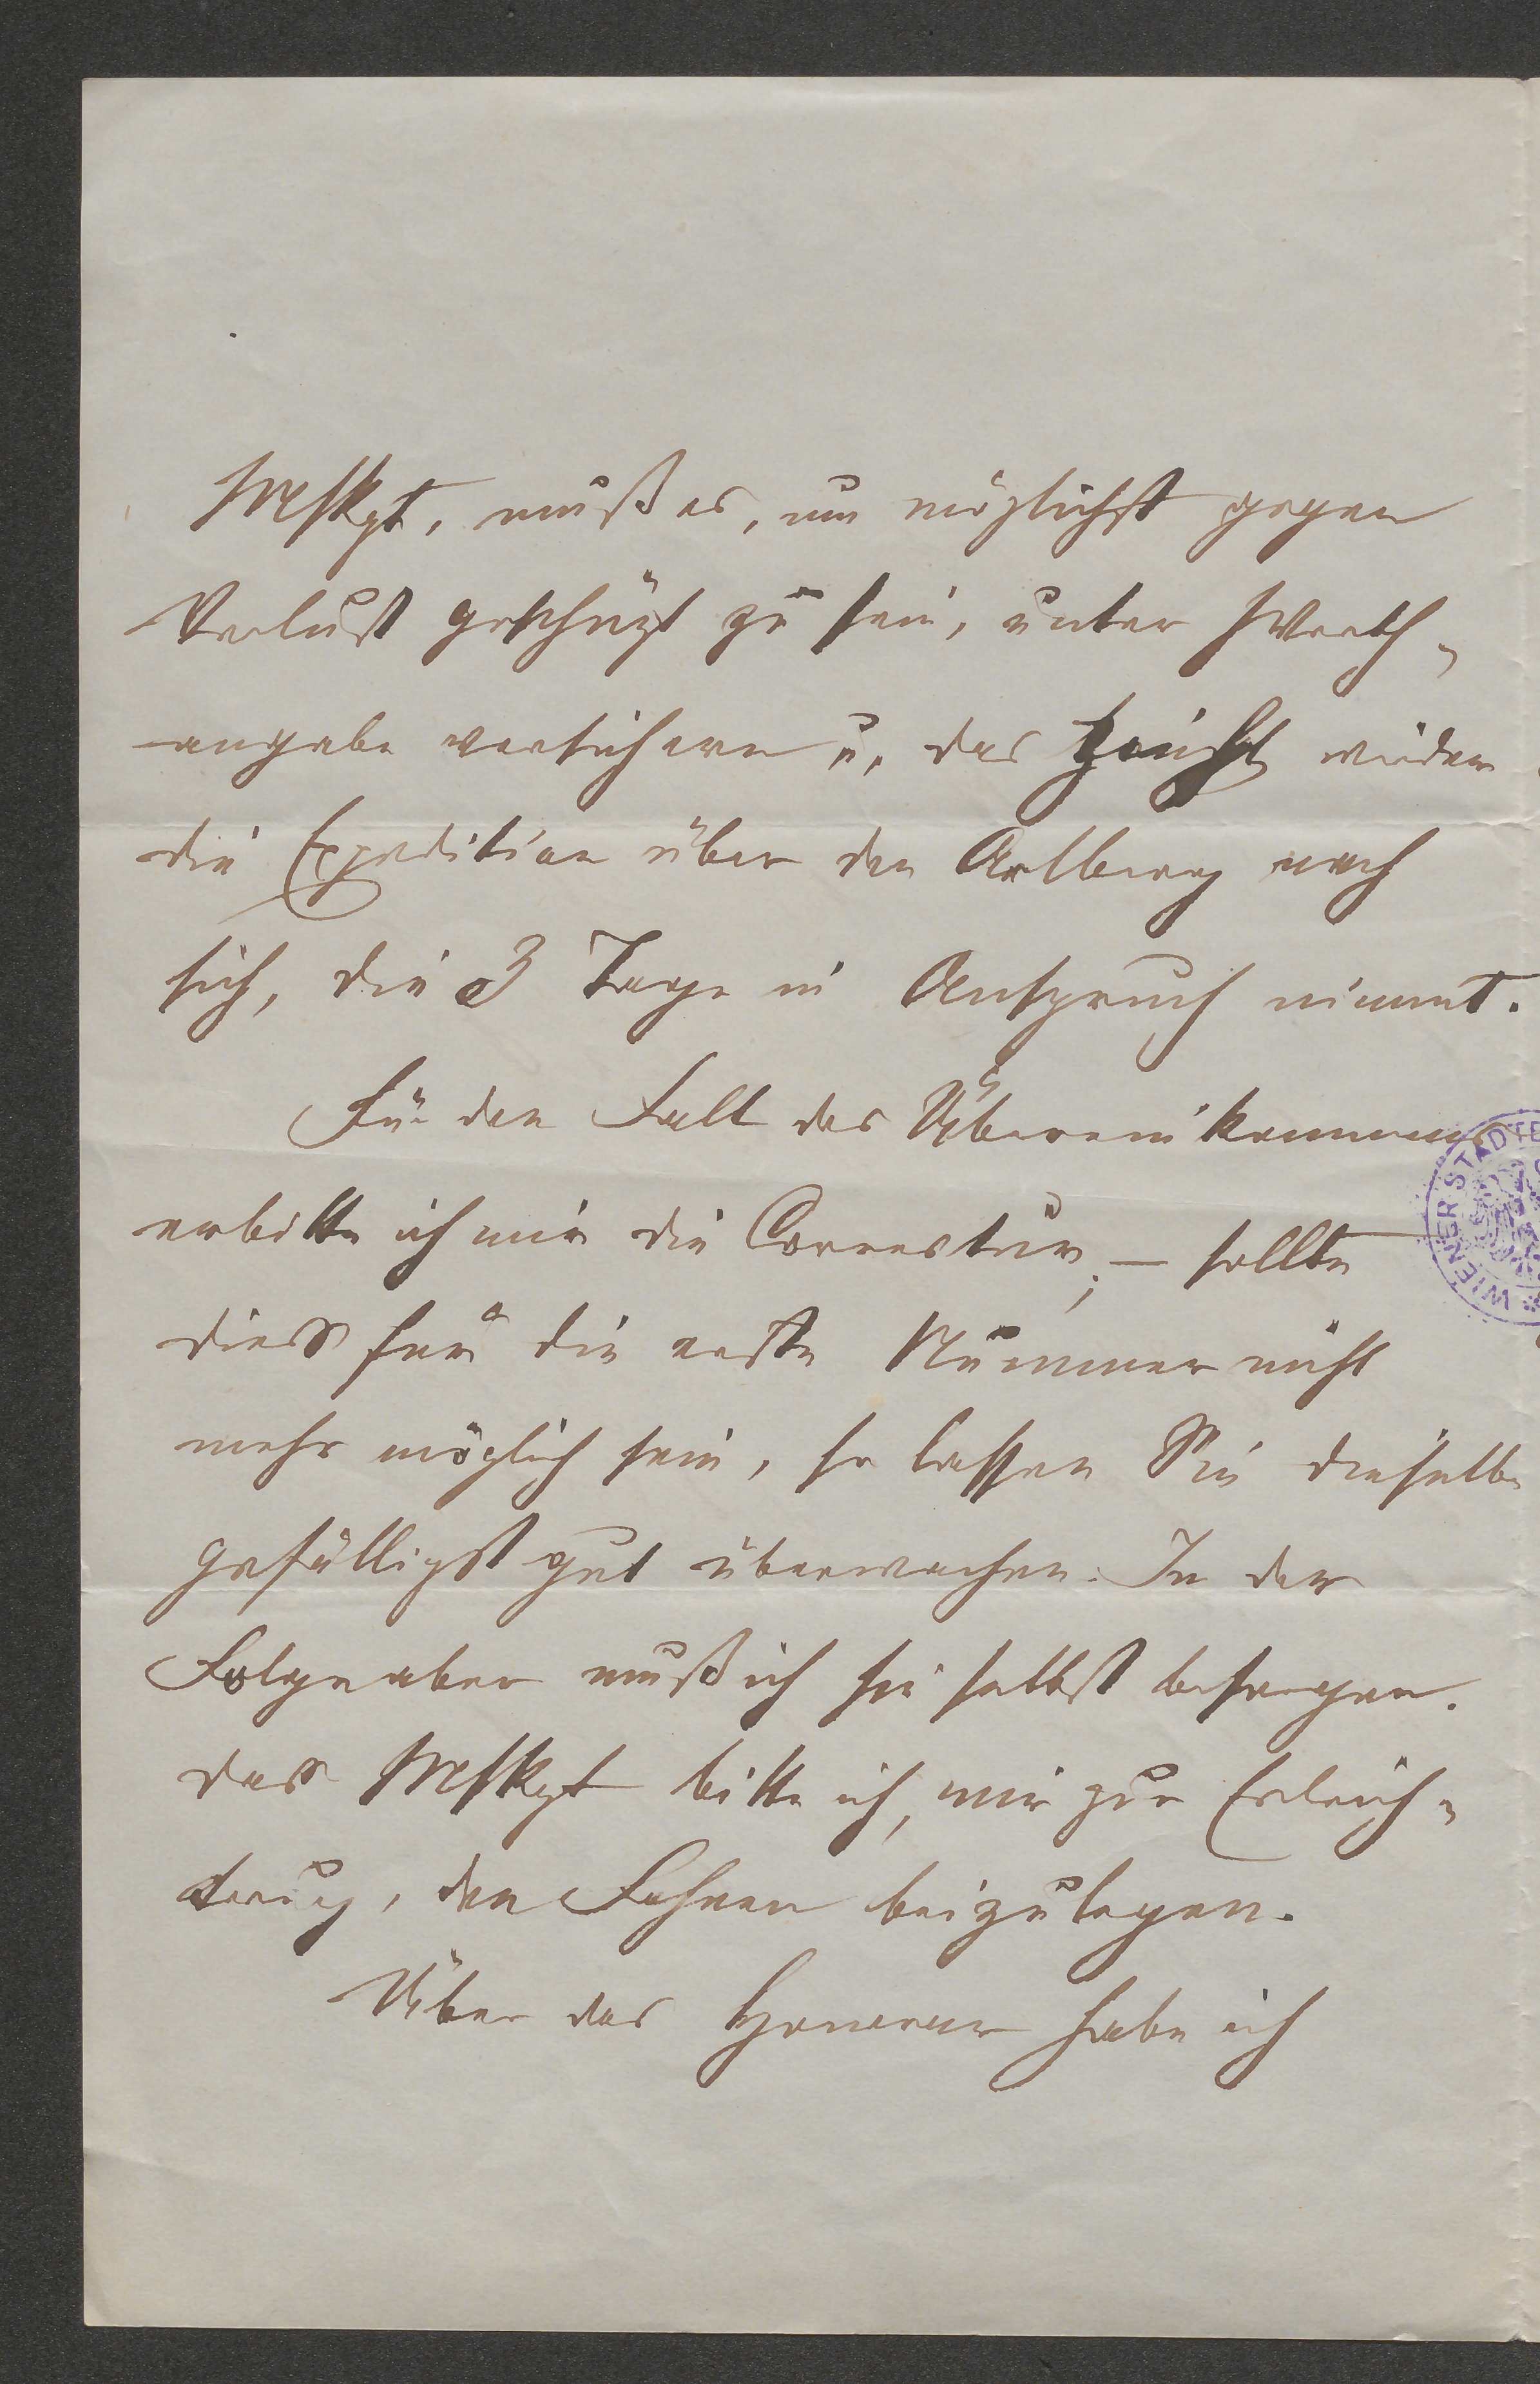 Mskpt, muß es, um möglichst gegen
Verlust geschüzt zu sein, unter Werth-
angabe versichern u. das zieht wieder
die Expedition über den Arlberg nach
sich, die 3 Tage in Anspruch nimmt.
Für den Fall des Übereinkommens
erbitte ich mir die Correctur; – sollte
dieß für die erste Nummer nicht
mehr möglich sein, so lassen Sie dieselbe
gefälligst gut überwachen. In der
Folge aber muß ich sie selbst besorgen.
das Mskpt bitte ich, mir zur Erleich-
terung, den Fahnen beizulegen.
Über das Honorar habe ich
WIENER STÄDTE